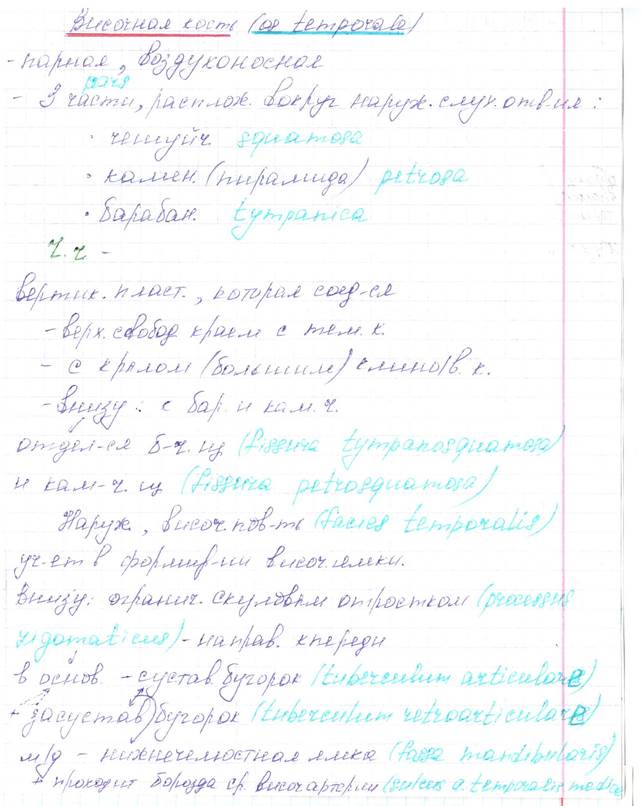 Височная кость (os temporale)
- парная, воздухоносная
pars
- 3 части, располож. вокруг наруж. слух. отв-ия:
· чешуйч. squamosa
· камен. (пирамида) petrosa
· барабан. tympanica
Ч.ч -
вертик. пласт., которая соед-ся
- верх. свобод краем с тем. к.
- с крылом (большим) клинов. к.
- внизу: с бар. и кам. ч.
отдел-ся б-ч. щ (fissura tympanosquamosa)
и кам-ч. щ (fissura petrosquamosa)
Наруж., височ. пов-ть (facies temporalis)
уч-ет в формир-ии височ. ямки.
Внизу: огранич. скуловым отростком (processus
zigomaticus) - направ. кпереди
в основ. - сустав. бугорок (tuberculum articulare)
+ засустав) бугорок (tuberculum retroarticulare)
м/д - нижнечелюстная ямка (fossa mandibularis)
+ проходит борозда ср. височ артерии (sulcus a. temporalis media